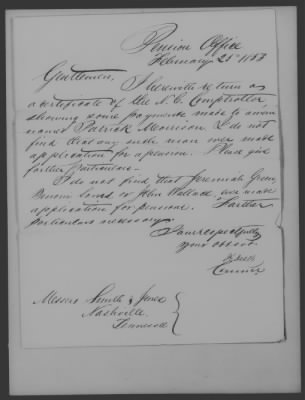 Pension Office
February 25th 1853
Gentlemen,
I herewith return
a certificate of the N.C. Comptroller
showing some payments made to a man
named Patrick Morrison. I do not
find that any such man ever made
application for a pension. Please give
further particulars—
I do not find that Jeremiah Green,
or John Wallace ever made
application for pension. Further
particulars necessary.
I am respectfully
Your obt Svt.
Messrs Smith & Jones
Nashville
Tennessee